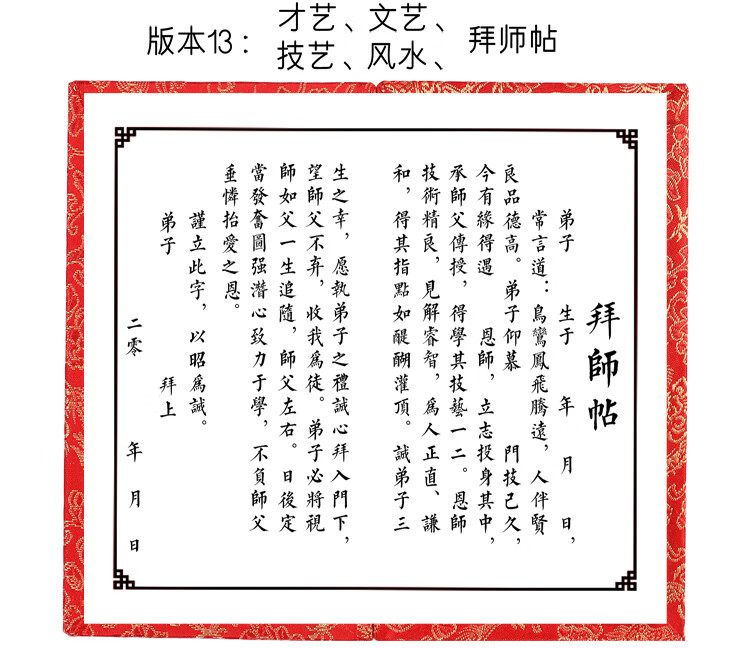 版本13：才艺、文艺、技艺、风水、拜师帖
拜師帖
弟子 生于 年 月 日，
常言道：鳥鸞鳳飛騰遠，人伴賢
良品德高。弟子仰慕 門技已久，
今有緣得遇 恩師，立志投身其中，
承師父傳授，得學其技藝一二。恩師
技術精良，見解睿智，爲人正直、謙
和，得其指點如醍醐灌頂。誠弟子三
生之幸，愿執弟子之禮誠心拜入門下，
望師父不弃，收我爲徒。弟子必將視
師如父一生追隨，師父左右。日後定
當發奮圖强潛心致力于學，不負師父
垂憐抬愛之恩。
謹立此字，以昭爲誠。
弟子 拜上
二零 年 月 日